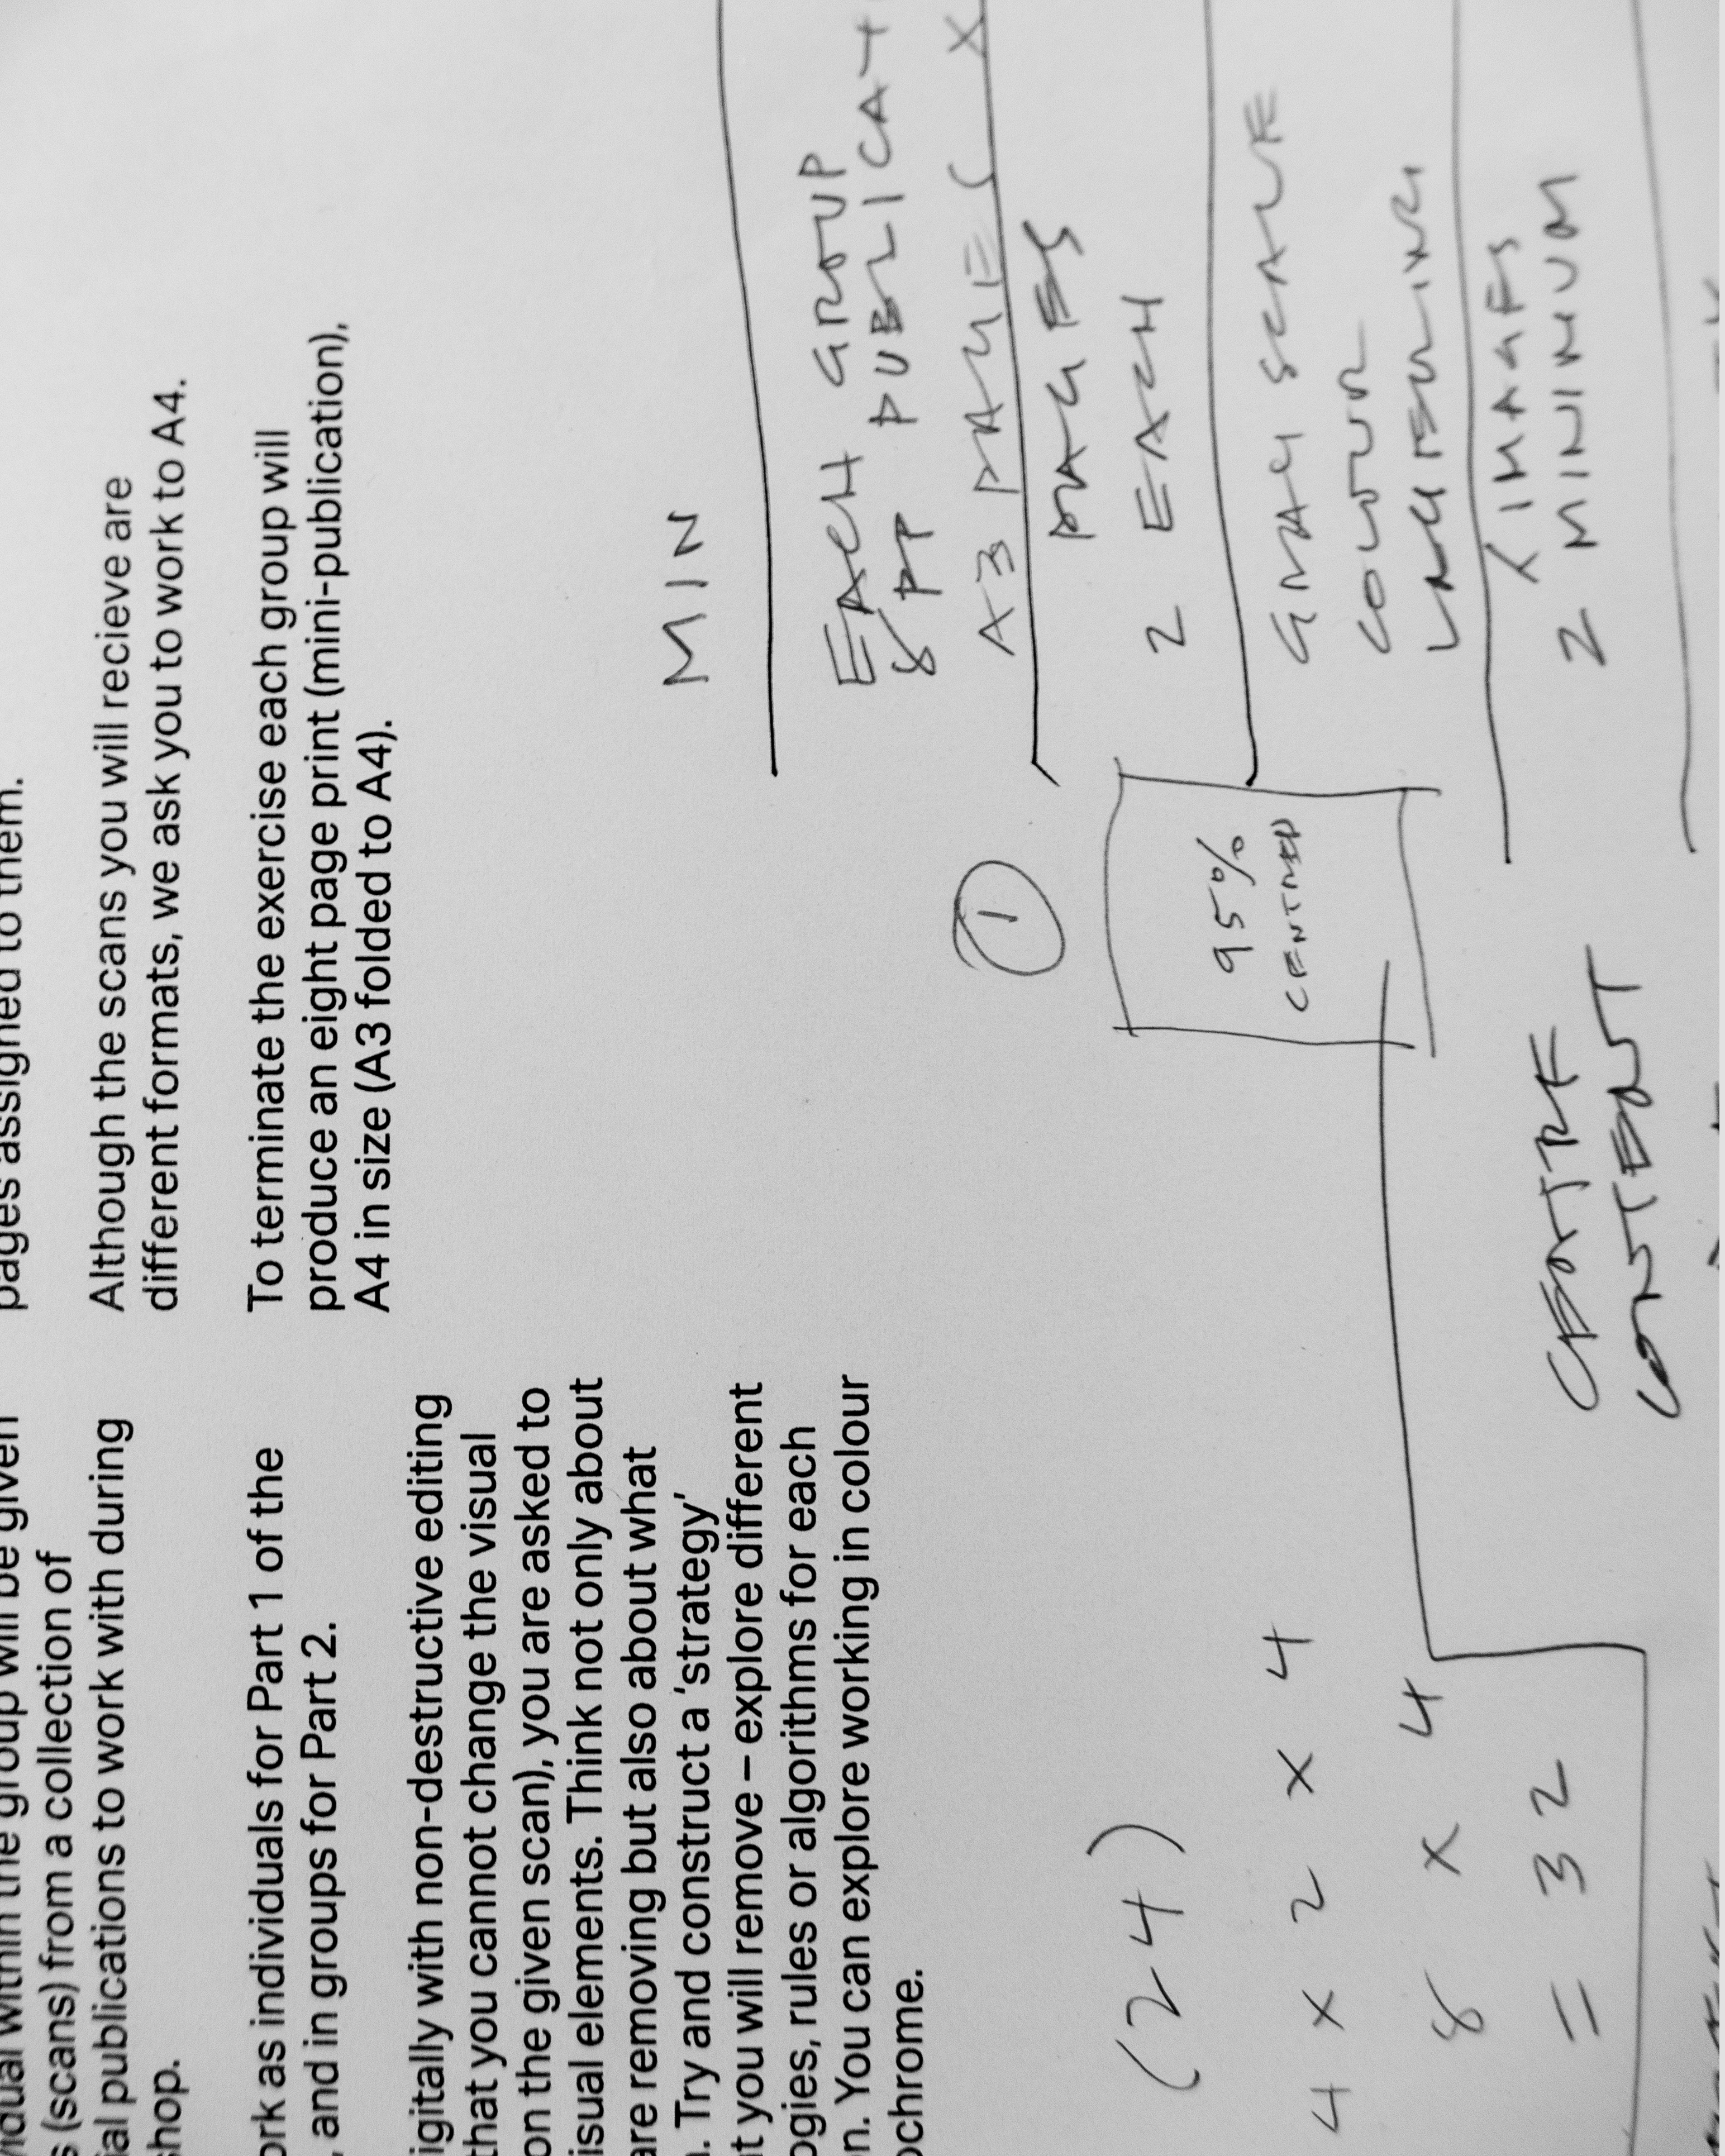 vidual within the group will be given
s (scans) from a collection of
ial publications to work with during
shop.
ork as individuals for Part 1 of the
, and in groups for Part 2.
igitally with non-destructive editing
that you cannot change the visual
on the given scan), you are asked to
isual elements. Think not only about
are removing but also about what
. Try and construct a ‘strategy’
t you will remove – explore different
ogies, rules or algorithms for each
n. You can explore working in colour
ochrome.
pages assigned to them.
Although the scans you will recieve are
different formats, we ask you to work to A4.
To terminate the exercise each group will
produce an eight page print (mini-publication),
A4 in size (A3 folded to A4).
(24)
4 x 2 x 4
8 x 4
= 32
MIN
EACH GROUP
8 PP PUBLICAT
A3 PAGES X
PAGES
2 EACH
GRAYSCALE
COLOUR
LAYERING
IMAGES
2 MINIMUM
1
95%
CENTRED
CENTRE
CONTENT